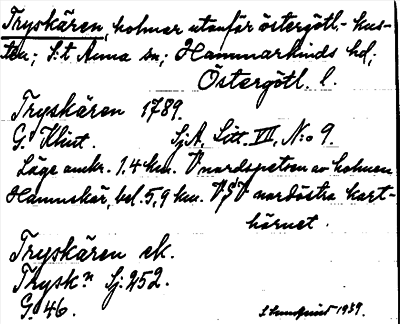 Tryskären, holmar utanför östergötl.-kus-
ten; S:t Anna sn; Hammarkinds hd;
Östergötl. l.
Tryskären 1789.
G. Klint. SjA, Litt. VII, N:o 9.
Läge omkr. 1.4 km. V nordspetsen av holmen
Hamnskär, bel. 5,9 km. VSV nordöstra kart-
hörnet.
Tryskären ek.
Trysk.n Sj: 252.
G. 46.
S Lundquist 1939.